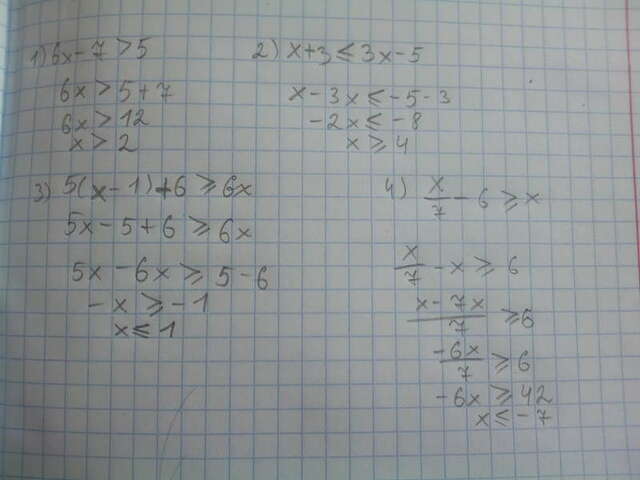 1) 6x - 7 > 5
6x > 5 + 7
6x > 12
x > 2
2) x + 3 ≤ 3x - 5
x - 3x ≤ -5 - 3
-2x ≤ -8
x ≥ 4
3) 5(x - 1) + 6 ≥ 6x
5x - 5 + 6 ≥ 6x
5x - 6x ≥ 5 - 6
-x ≥ -1
x ≤ 1
4) x/7 - 6 ≥ x
x/7 - x ≥ 6
(x - 7x)/7 ≥ 6
-6x/7 ≥ 6
-6x ≥ 42
x ≤ -7